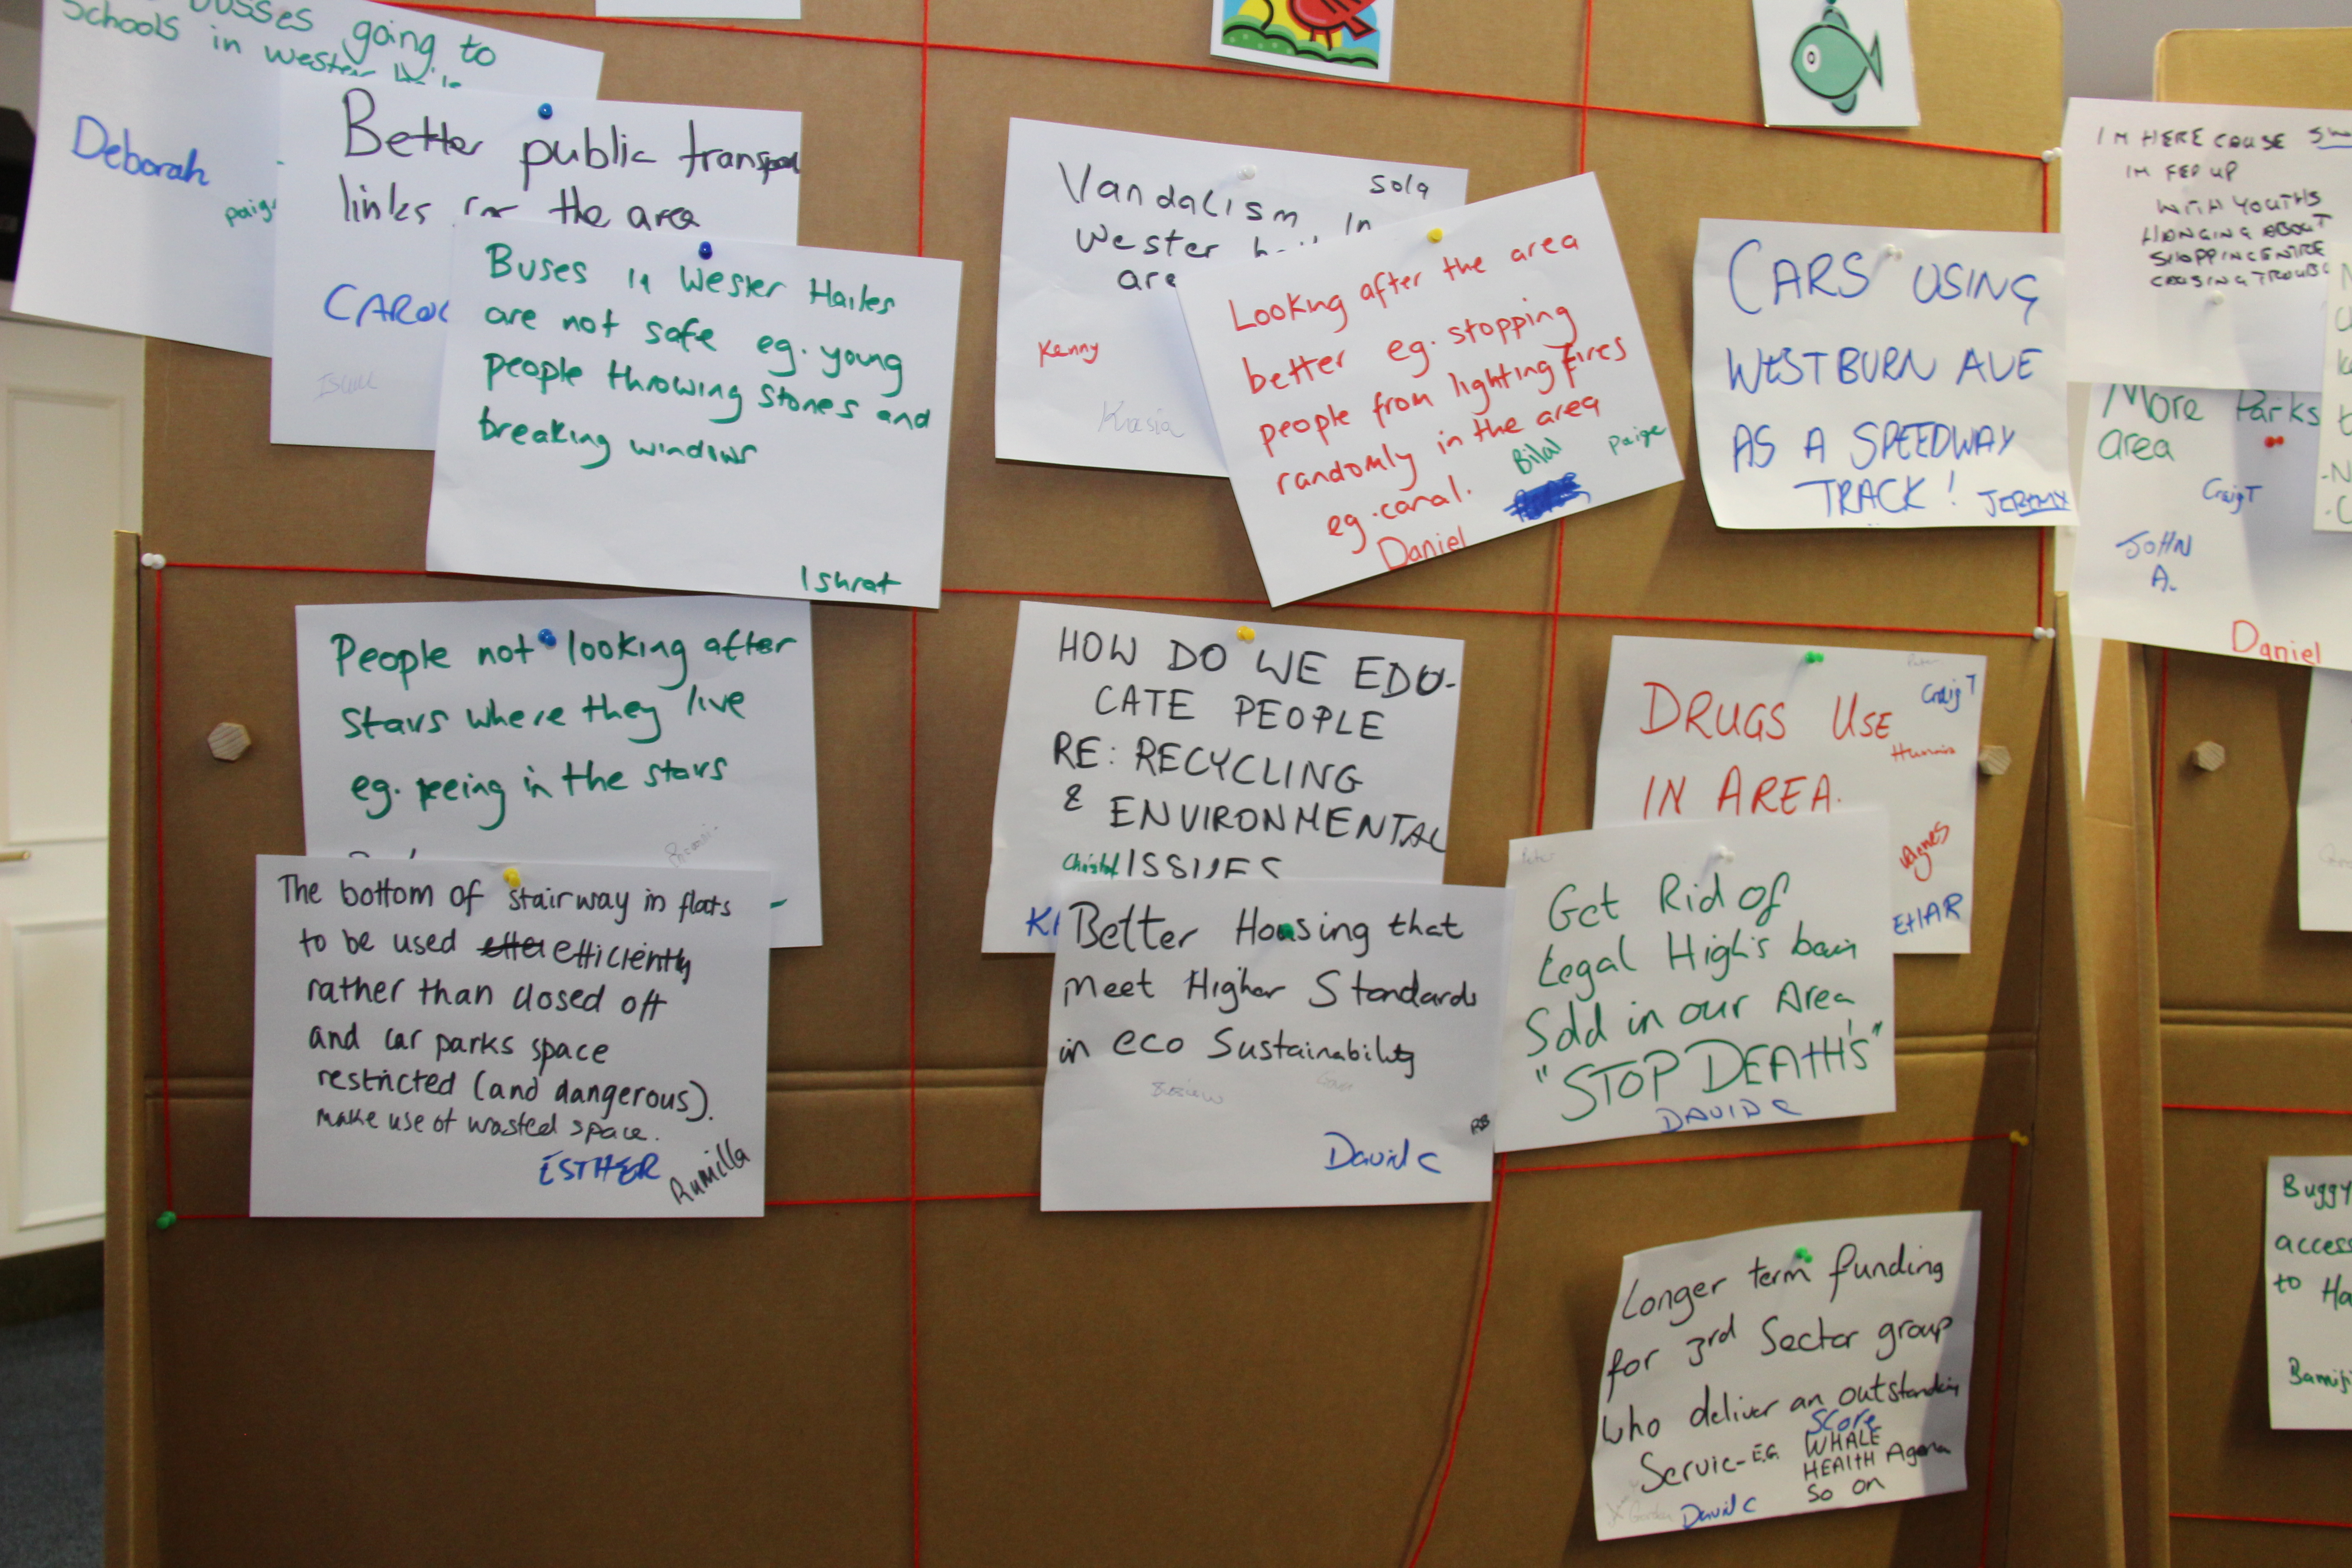 busses going to
Schools in Wester
Deborah
paige
Better public transport
links for the area
CAROL
Buses in Wester Hailes
are not safe eg. young
people throwing stones and
breaking windows
Ishrat
Vandalism in
Wester
area
Sola
Kenny
Krasia
Looking after the area
better eg. stopping
people from lighting fires
randomly in the area
eg. canal.
Bilal
Paige
Daniel
CARS USING
WESTBURN AVE
AS A SPEEDWAY
TRACK! JEREMY
I'M HERE COUSE
IM FED UP
WITH YOUTHS
HONGING ABOUT
SHOPPINCENTRE
COUSING TROUB
More Parks
area
Craig T
JOHN
A.
Daniel
People not looking after
stairs where they live
eg. peeing in the stairs
The bottom of stairway in flats
to be used efficiently
rather than closed off
and car parks space
restricted (and dangerous).
make use of wasted space.
ESTHER
Rumilla
HOW DO WE EDU-
CATE PEOPLE
RE: RECYCLING
& ENVIRONMENTAL
ISSUES
Christof
Better Housing that
Meet Higher Standards
in eco Sustainability
RB
David C
DRUGS USE
IN AREA.
Peter
Craig T
Agnes
EtHAR
Peter
Get Rid of
Legal High's bain
Sold in our Area
"STOP DEATH'S"
DAVID C
Longer term funding
for 3rd Sector group
who deliver an outstanding
Servic- E.G. SCORE
WHALE
HEALTH Agena
So on
Gordon
David C
Buggy
access
to Ha